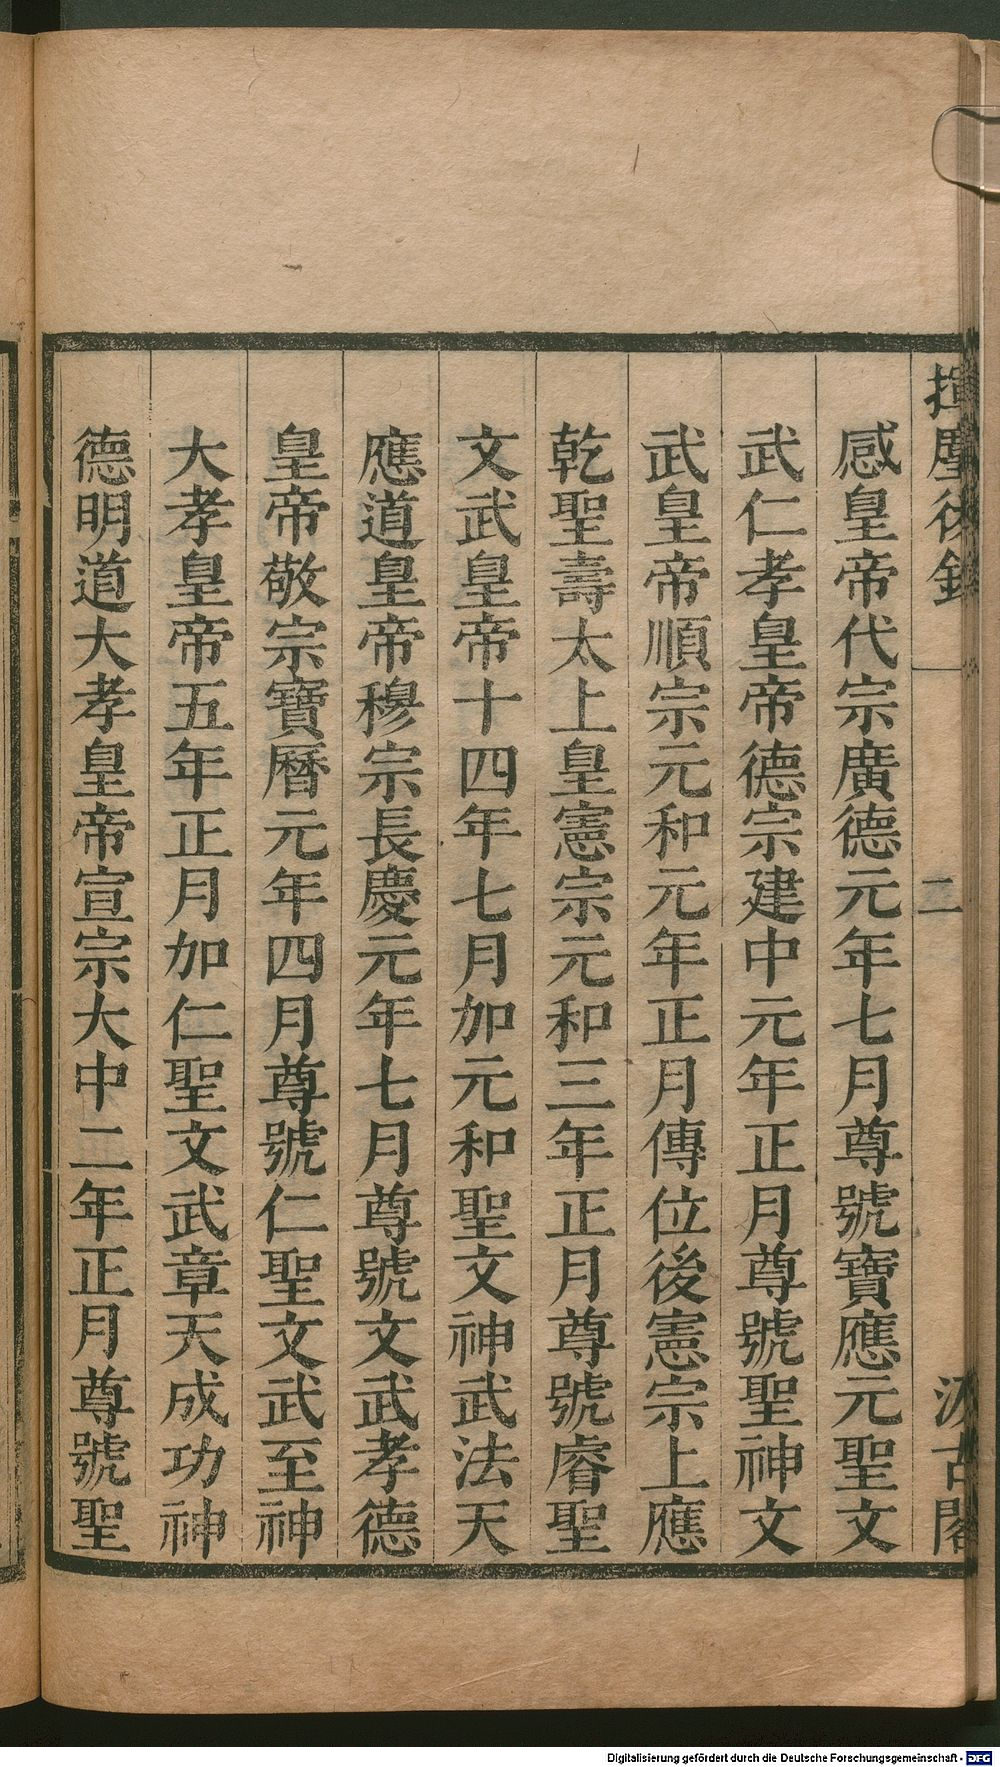 揮麈後錄
二
汲古閣
感皇帝代宗廣德元年七月尊號寶應元聖文
武仁孝皇帝德宗建中元年正月尊號聖神文
武皇帝順宗元和元年正月傳位後憲宗上應
乾聖壽太上皇憲宗元和三年正月尊號睿聖
文武皇帝十四年七月加元和聖文神武法天
應道皇帝穆宗長慶元年七月尊號文武孝德
皇帝敬宗寶曆元年四月尊號仁聖文武至神
大孝皇帝五年正月加仁聖文武章天成功神
德明道大孝皇帝宣宗大中二年正月尊號聖
Digitalisierung gefördert durch die Deutsche Forschungsgemeinschaft - DFG